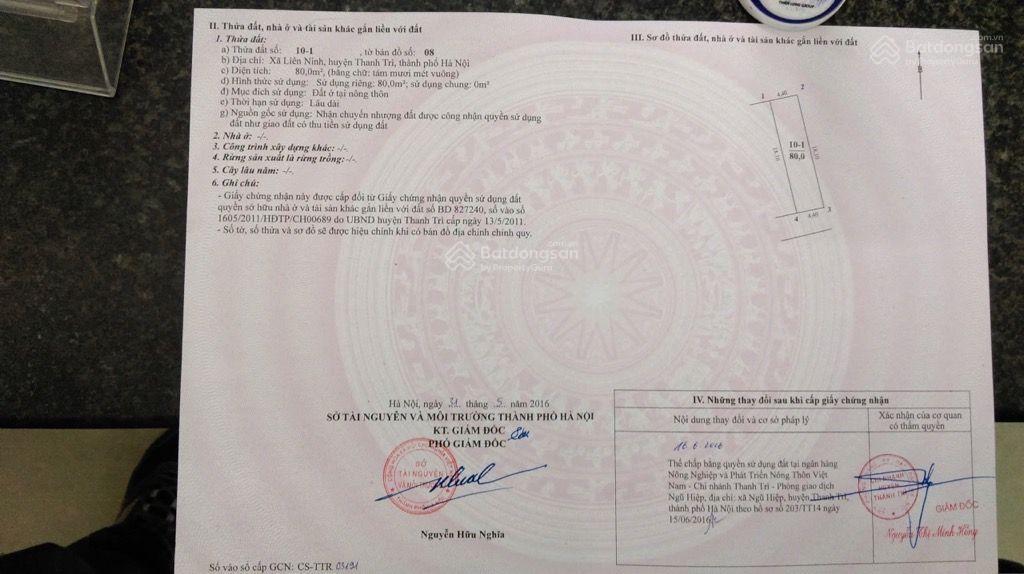 THIEN LONG GROUP
II. Thửa đất, nhà ở và tài sản khác gắn liền với đất
1. Thửa đất:
a) Thửa đất số: 10-1 , tờ bản đồ số: 08
b) Địa chỉ: Xã Liên Ninh, huyện Thanh Trì, thành phố Hà Nội
c) Diện tích: 80,0m², (bằng chữ: tám mươi mét vuông)
d) Hình thức sử dụng: Sử dụng riêng: 80,0m²; sử dụng chung: 0m²
đ) Mục đích sử dụng: Đất ở tại nông thôn
e) Thời hạn sử dụng: Lâu dài
g) Nguồn gốc sử dụng: Nhận chuyển nhượng đất được công nhận quyền sử dụng
đất như giao đất có thu tiền sử dụng đất
2. Nhà ở: -/-
3. Công trình xây dựng khác: -/-
4. Rừng sản xuất là rừng trồng: -/-
5. Cây lâu năm: -/-
6. Ghi chú:
- Giấy chứng nhận này được cấp đổi từ Giấy chứng nhận quyền sử dụng đất
quyền sở hữu nhà ở và tài sản khác gắn liền với đất số BD 827240, số vào sổ
1605/2011/HĐTP/CH00689 do UBND huyện Thanh Trì cấp ngày 13/5/2011.
- Số tờ, số thửa và sơ đồ sẽ được hiệu chỉnh khi có bản đồ địa chính chính quy.
III. Sơ đồ thửa đất, nhà ở và tài sản khác gắn liền với đất
Batdongsan .com.vn
by PropertyGuru
B
1 4.40 2
18.10 10-1 18.10
80,0
4 4.40 3
Batdongsan .com.vn
by PropertyGuru
Hà Nội, ngày 31 tháng 5 năm 2016
SỞ TÀI NGUYÊN VÀ MÔI TRƯỜNG THÀNH PHỐ HÀ NỘI
KT. GIÁM ĐỐC
PHÓ GIÁM ĐỐC
SỞ
TÀI NGUYÊN
VÀ MÔI TRƯỜNG
Nguyễn Hữu Nghĩa
Số vào sổ cấp GCN: CS-TTR 03191
IV. Những thay đổi sau khi cấp giấy chứng nhận
Nội dung thay đổi và cơ sở pháp lý
Xác nhận của cơ quan
có thẩm quyền
16.6.2016
Thế chấp bằng quyền sử dụng đất tại ngân hàng
Nông Nghiệp và Phát Triển Nông Thôn Việt
Nam - Chi nhánh Thanh Trì - Phòng giao dịch
Ngũ Hiệp, địa chỉ: xã Ngũ Hiệp, huyện Thanh Trì,
thành phố Hà Nội theo hồ sơ số 203/TT14 ngày
15/06/2016
CHI NHÁNH
HUYỆN
THANH TRÌ
GIÁM ĐỐC
Nguyễn Thị Minh Hồng